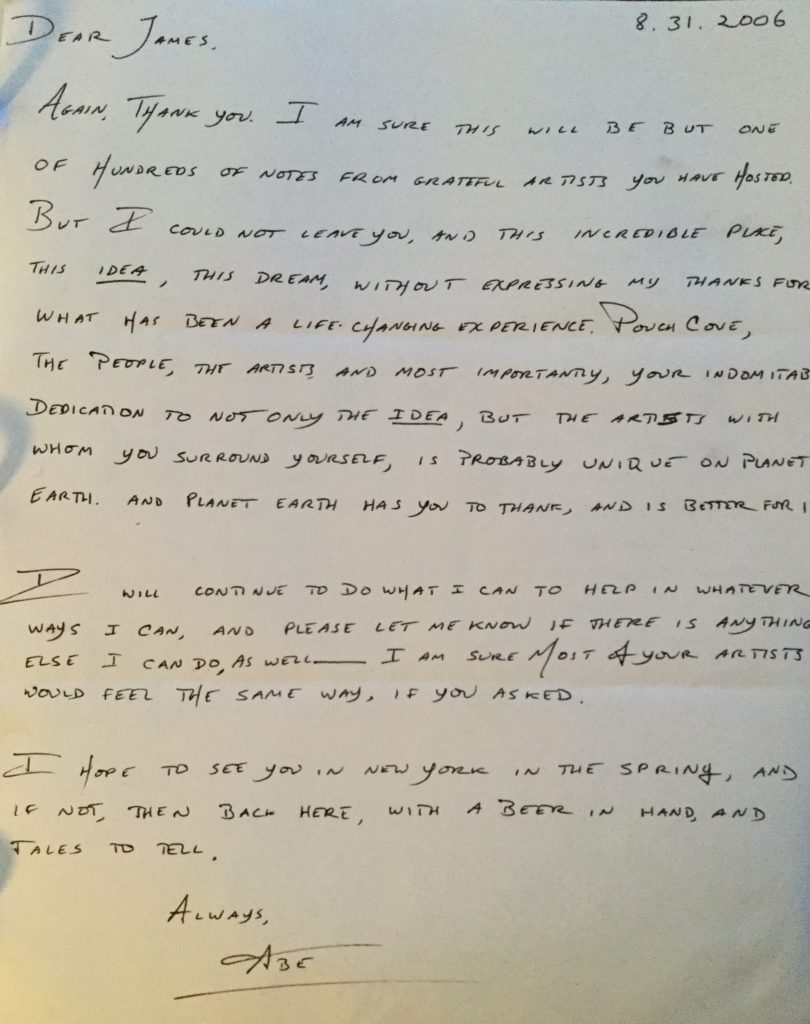 8.31.2006
DEAR JAMES,
AGAIN, THANK YOU. I AM SURE THIS WILL BE BUT ONE
OF HUNDREDS OF NOTES FROM GRATEFUL ARTISTS YOU HAVE HOSTED.
BUT I COULD NOT LEAVE YOU, AND THIS INCREDIBLE PLACE,
THIS IDEA, THIS DREAM, WITHOUT EXPRESSING MY THANKS FOR
WHAT HAS BEEN A LIFE-CHANGING EXPERIENCE. POUCH COVE,
THE PEOPLE, THE ARTISTS AND MOST IMPORTANTLY, YOUR INDOMITAB
DEDICATION TO NOT ONLY THE IDEA, BUT THE ARTISTS WITH
WHOM YOU SURROUND YOURSELF, IS PROBABLY UNIQUE ON PLANET
EARTH. AND PLANET EARTH HAS YOU TO THANK, AND IS BETTER FOR I
I WILL CONTINUE TO DO WHAT I CAN TO HELP IN WHATEVER
WAYS I CAN, AND PLEASE LET ME KNOW IF THERE IS ANYTHING
ELSE I CAN DO, AS WELL — I AM SURE MOST OF YOUR ARTISTS
WOULD FEEL THE SAME WAY, IF YOU ASKED.
I HOPE TO SEE YOU IN NEW YORK IN THE SPRING, AND
IF NOT, THEN BACK HERE, WITH A BEER IN HAND, AND
TALES TO TELL.
ALWAYS,
ABE